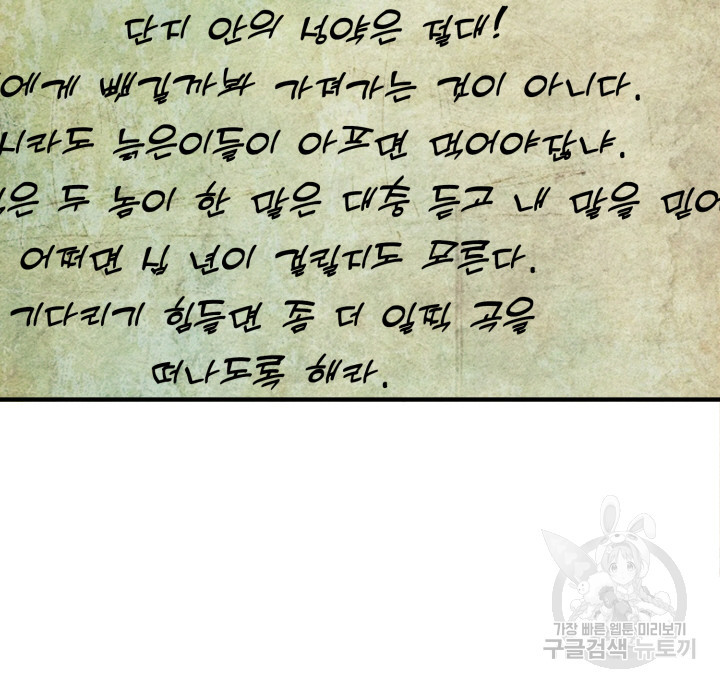 단지 안의 영약은 절대!
에게 빼길까봐 가져가는 것이 아니다.
시라도 늙은이들이 아프면 먹어야잖냐.
은 두 놈이 한 말은 대충 듣고 내 말을 믿어
어쩌면 십 년이 걸릴지도 모른다.
기다리기 힘들면 좀 더 일찍 곡을
떠나도록 해라.
가장 빠른 웹툰 미리보기
구글검색 뉴토끼